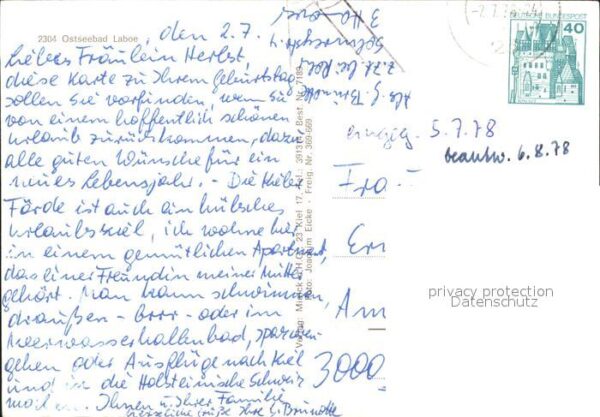 2304 Ostseebad Laboe, den 2.7.
Liebes Fräulein Herbst,
diese Karte zu Ihrem Geburtstag
sollen Sie vorfinden, wenn Sie
von einem hoffentlich schönen
Urlaub zurückkommen, dazu
alle guten Wünsche für ein
neues Lebensjahr. - Die Kieler
Förde ist auch ein hübsches
Urlaubsziel, ich wohne hier
in einem gemütlichen Apartment,
das einer Freundin meiner Mutter
gehört. Man kann schwimmen,
draußen - brrr - oder im
Meerwasserhallenbad, spazieren
gehen oder Ausflüge nach Kiel
und in die Holsteinische Schweiz
machen. Ihnen und Ihrer Familie
herzliche Grüße Ihre G. Brünotte
Abs. G. Brünotte
z.Zt.
3 Hann
DEUTSCHE BUNDESPOST
40
eingeg. 5.7.78
beantw. 6.8.78
Fra
Am
3000
privacy protection
Datenschutz